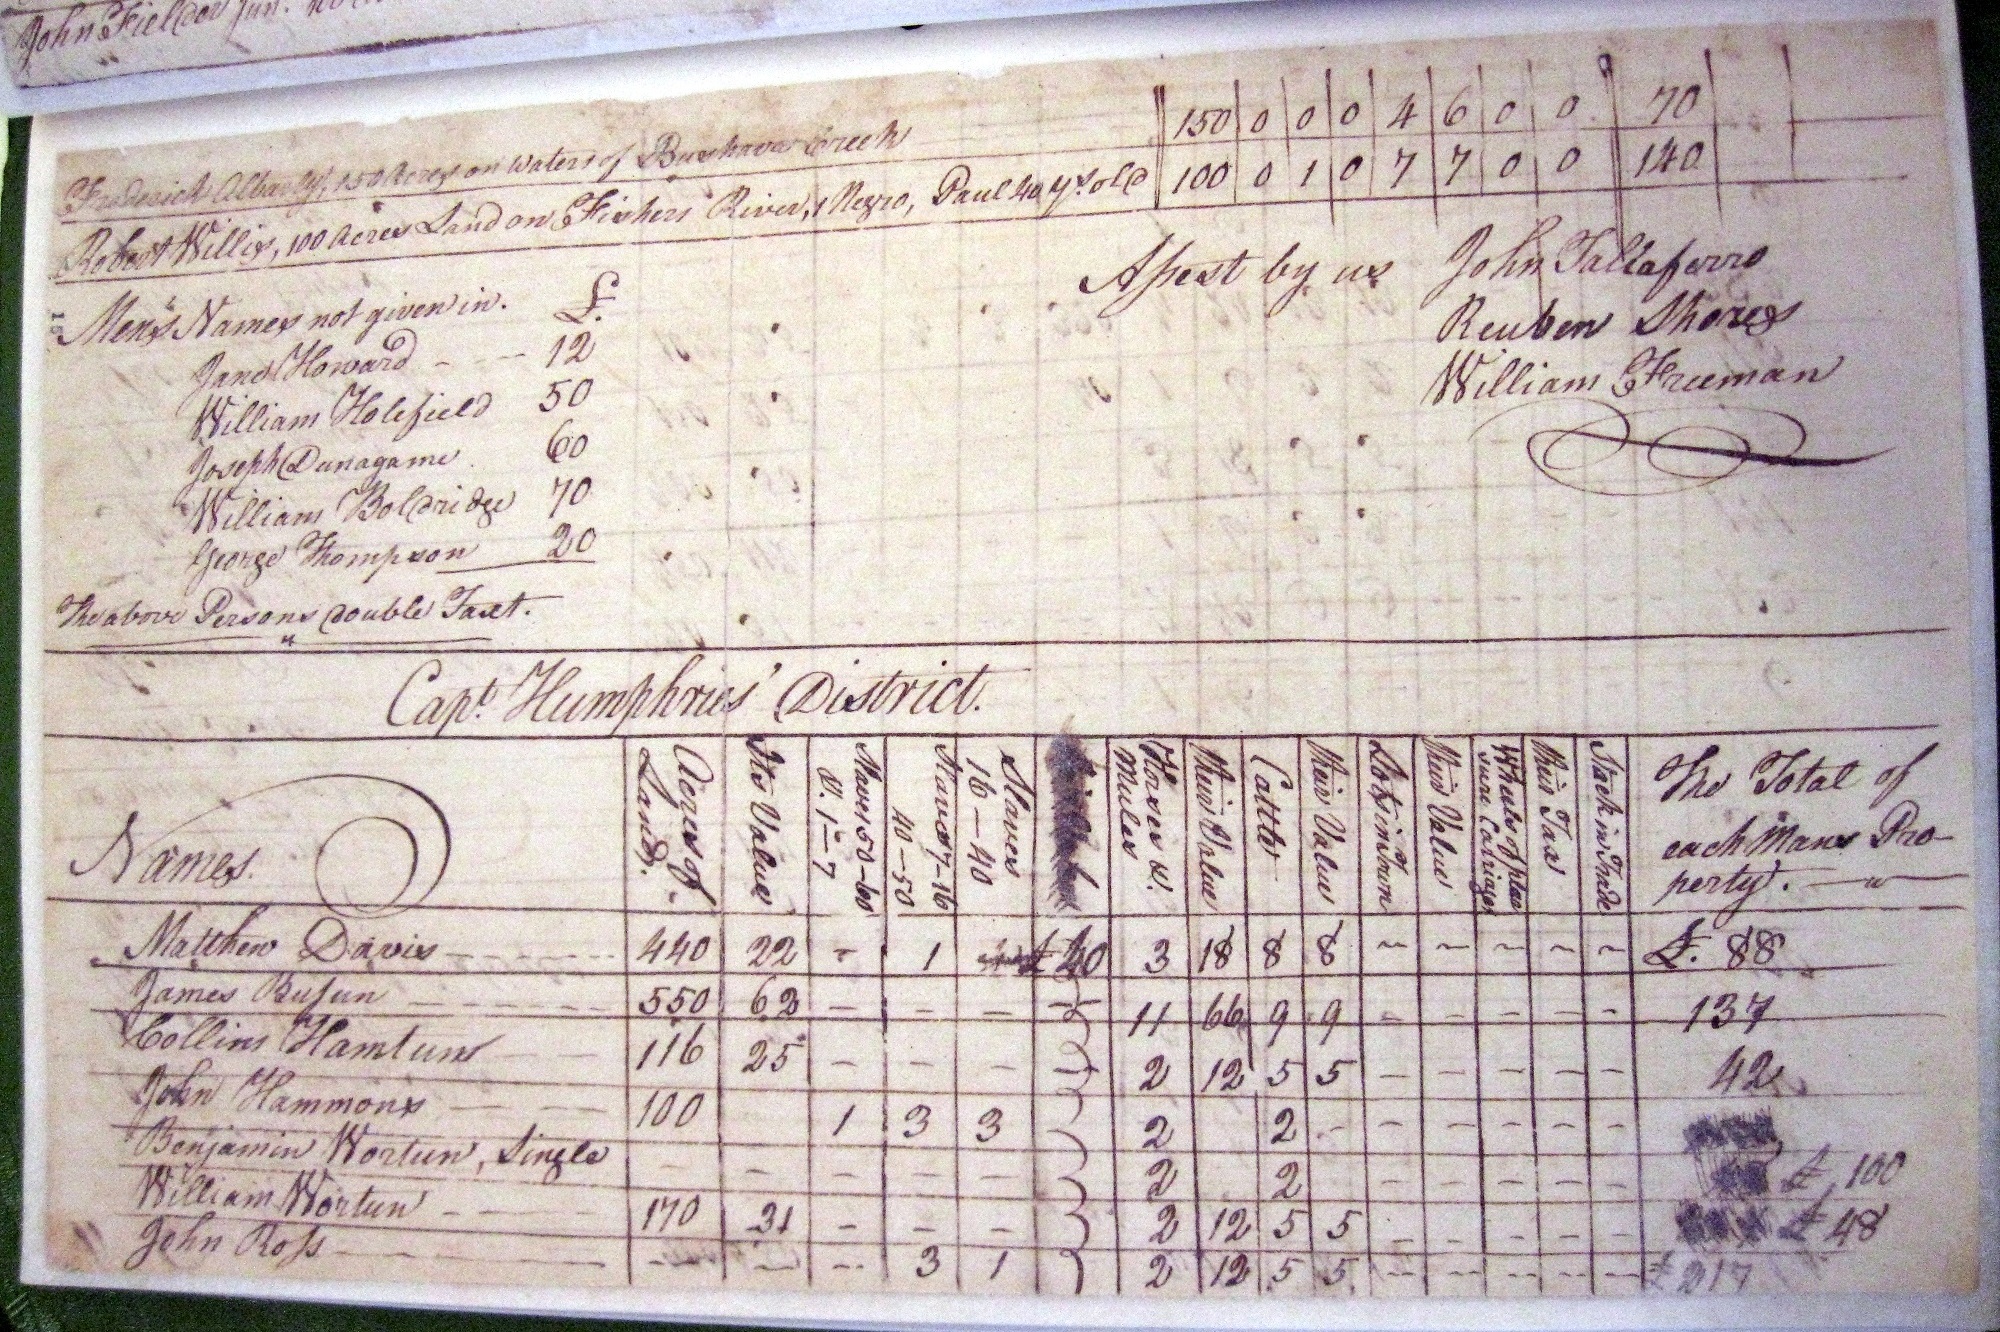 John Fielder Jun.
Frederick Albarty, 150 Acres on waters of Creek 150 0 0 0 4 6 0 0 70
Robert Willis, 100 Acres Land on Fishers River, 1 Negro, Paul 40 yrs old 100 0 1 0 7 7 0 0 140
Assest by us John Taliaferro
Reuben Shores
William Freeman
Mens Names not given in. £.
Jane Howard - - - - 12
William Holefield 50
Joseph Dunagame 60
William Boldridge 70
George Thompson 20
The above Persons double Taxt.
15
Capt. Humphries' District.
Names. Acres of Land. Its Value Slaves 50-60 & 1-7 Slaves 7-16 40-50 Slaves 16-40 Horses & Mules their Value Cattle their Value Lots in Town their Value Wheels of plea sure Carriages their Tax Stock in Trade The Total of each Mans Pro- perty.
Matthew Davis 440 22 - 1 £40 3 18 8 8 - - - - - £. 88
James Busun 550 62 - - - - 11 66 9 9 - - - - - 137
Collins Hamtum 116 25 - - - - 2 12 5 5 - - - - - 42
John Hammons 100 1 3 3 2 2 - - - - - -
Benjamin Wortun, Single - - - - - 2 2 - - - - - £ 100
William Wortun 170 31 - - - 2 12 5 5 - - - - - £ 48
John Ross - - - 3 1 2 12 5 5 - - - - - £ 217